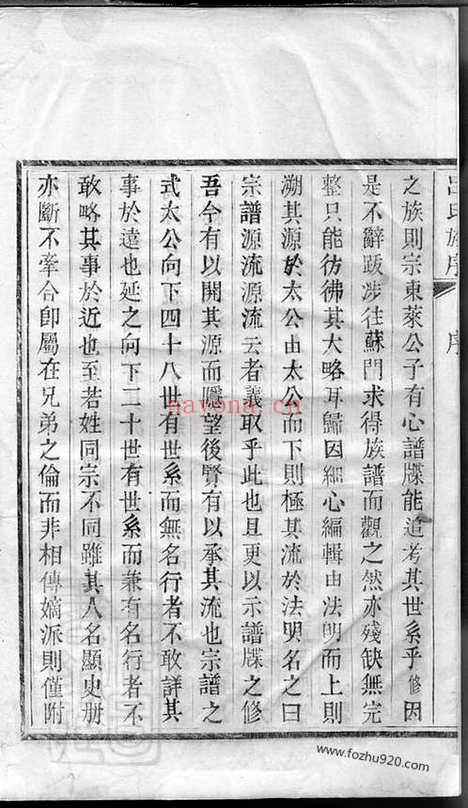 呂氏族序
序
之族則宗東萊公子有心譜牒能追考其世系乎修因
是不辭跋涉往蘇門求得族譜而觀之然亦殘缺無完
整只能彷彿其大略耳歸因細心編輯由法明而上則
溯其源於太公由太公而下則極其流於法明名之曰
宗譜源流源流云者義取乎此也且更以示譜牒之修
吾今有以開其源而隱望後賢有以承其流也宗譜之
式太公向下四十八世有世系而無名行者不敢詳其
事於遠也延之向下二十世有世系而兼有名行者不
敢略其事於近也至若姓同宗不同雖其人名顯史冊
亦斷不牽合卽屬在兄弟之倫而非相傳嫡派則僅附
nayona.cn
www.fozhu920.com